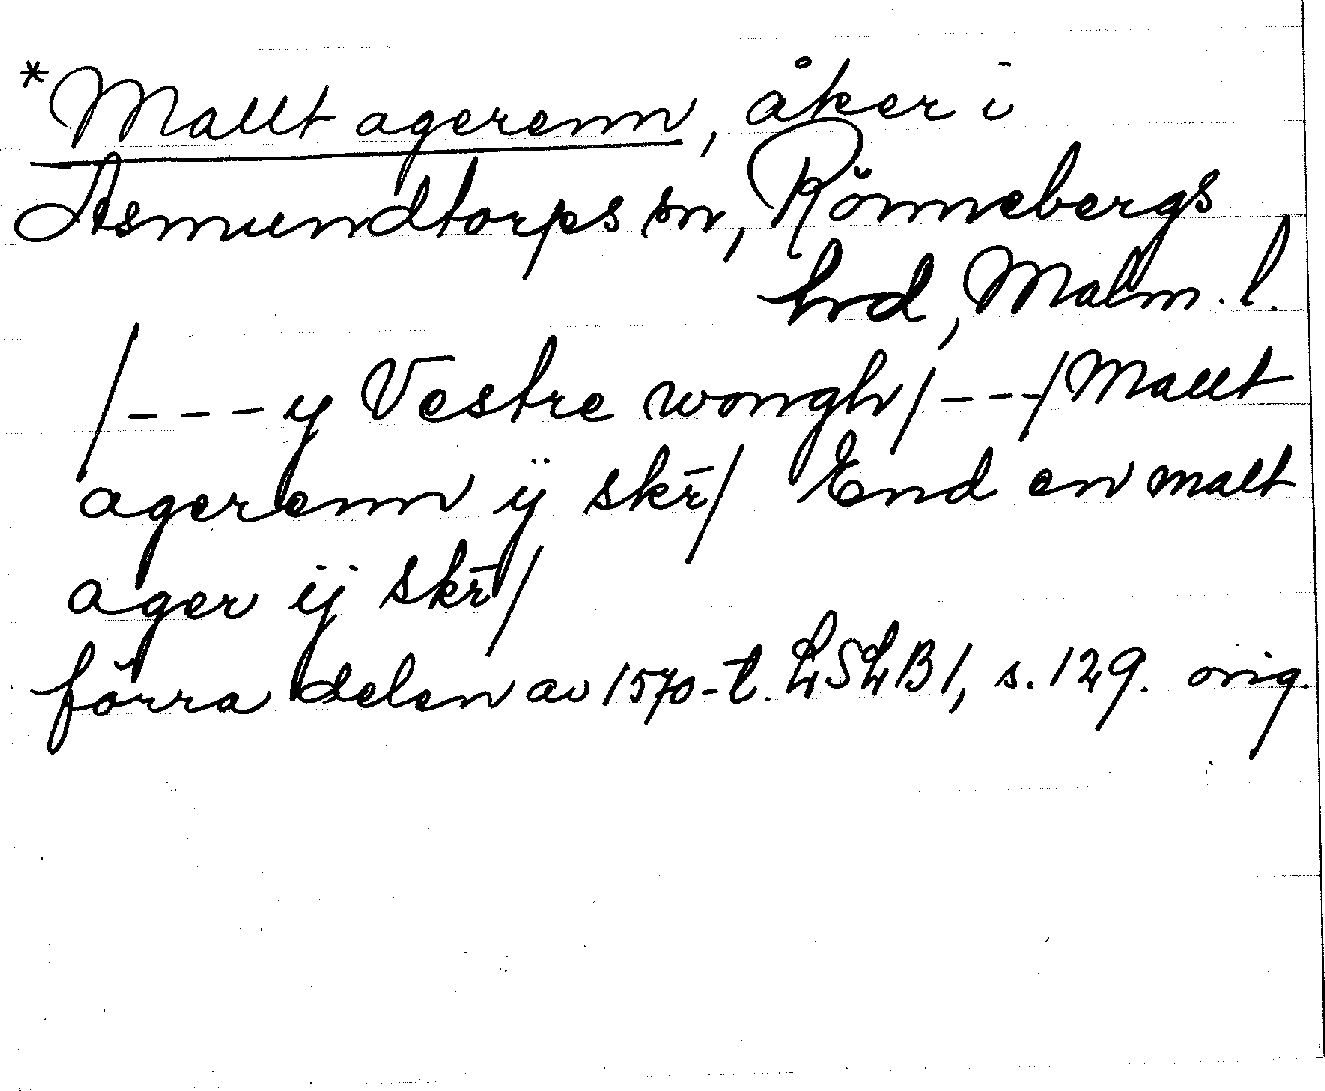 *Mallt agerenn, åker i
Asmundtorps sn, Rönnebergs
hrd, Malm. l.
/--- y Vestre wongh/---/Mallt
agerenn ij skr̄/ End en malt
ager ij skr̄/
förra delen av 1570-t. LSLB1, s. 129. orig.